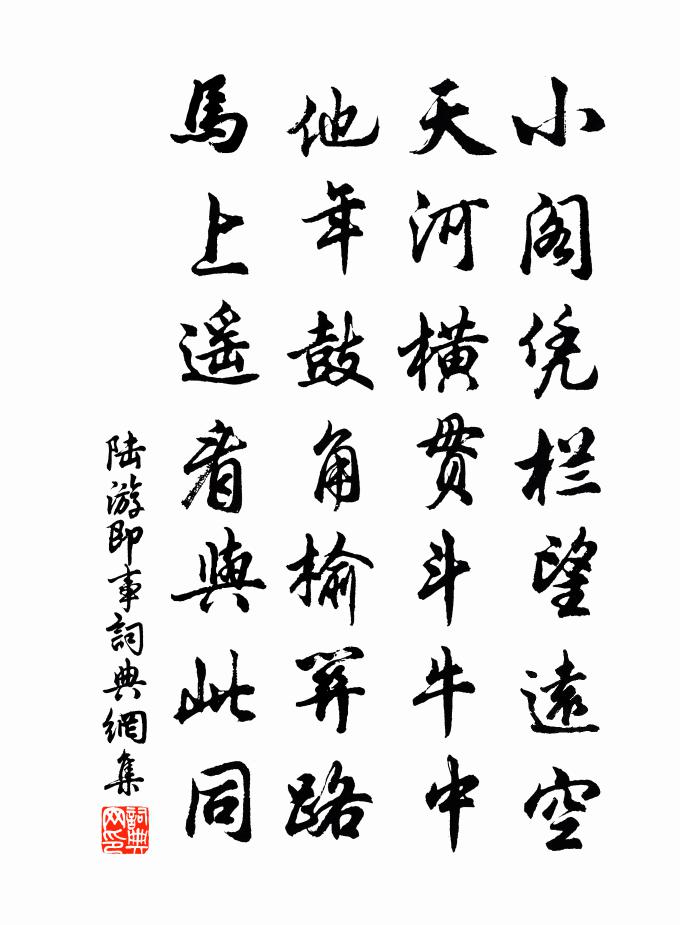 小阁凭栏望遠空
天河横贯斗牛中
他年鼓角榆關路
馬上遥看與此同
陆游即事詞典網集
詞典网印